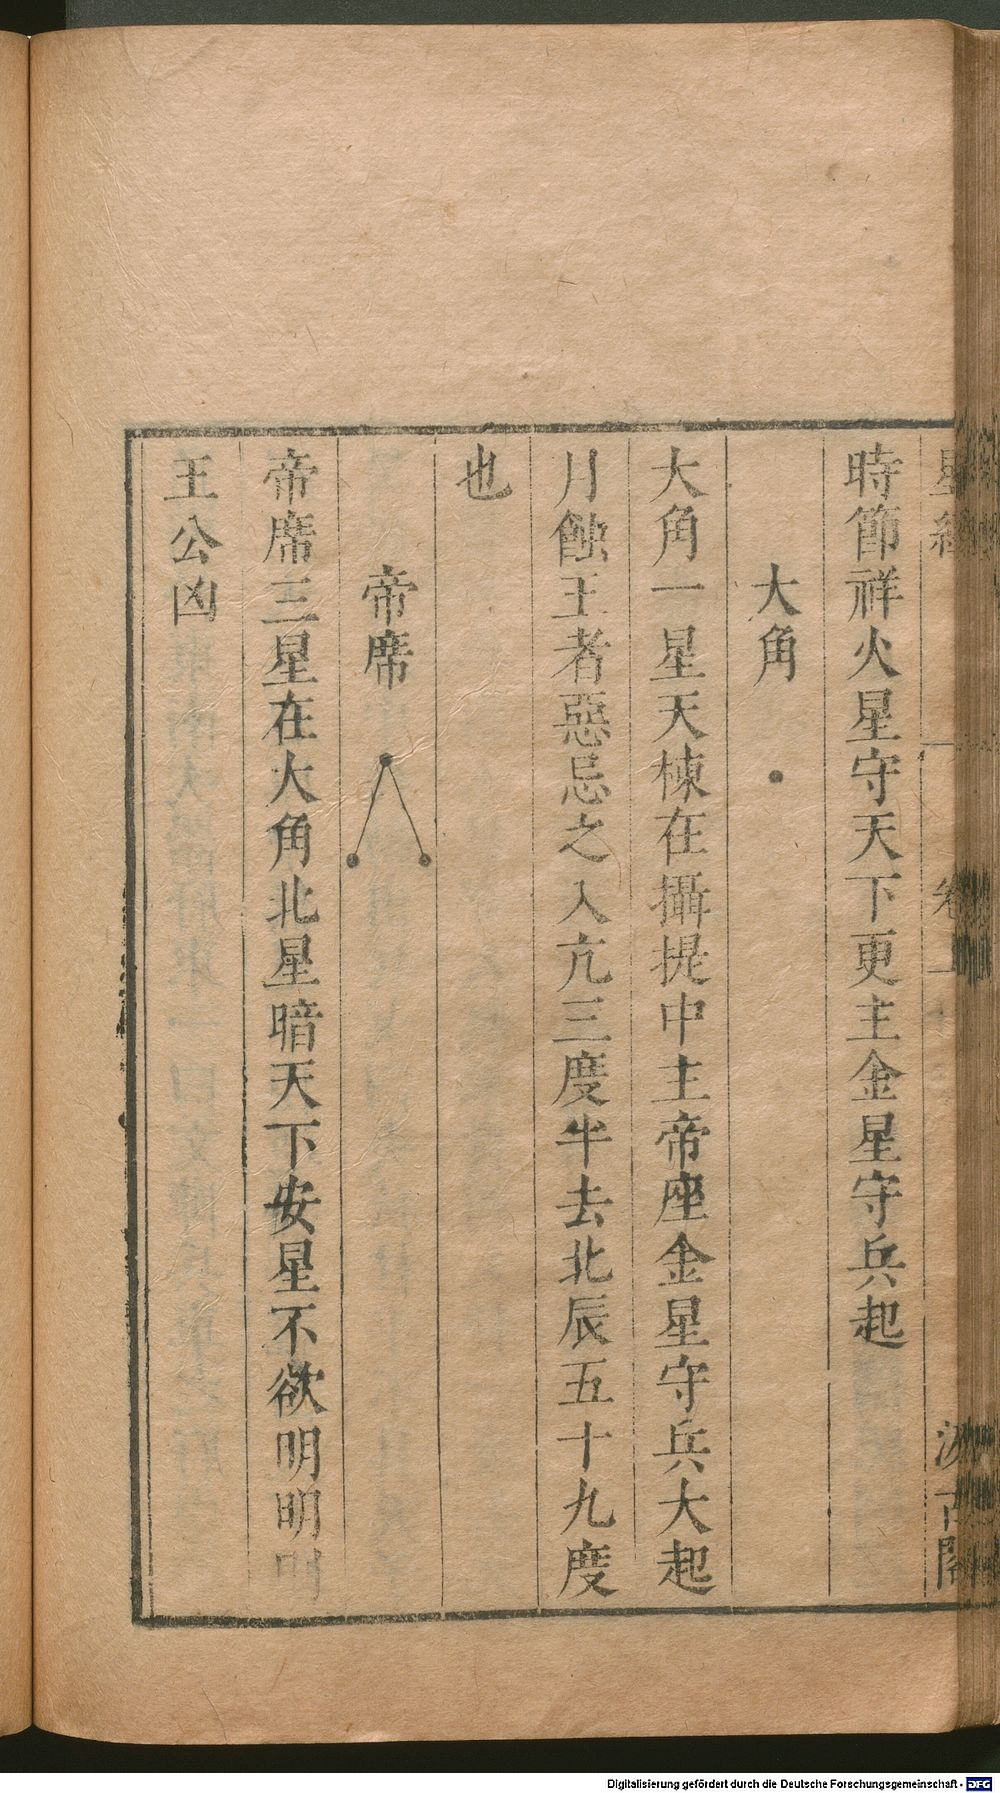 星經
卷上
汲古閣
時節祥火星守天下更主金星守兵起
大角
大角一星天棟在攝提中主帝座金星守兵大起
月蝕王者惡忌之入亢三度半去北辰五十九度
也
帝席
帝席三星在大角北星暗天下安星不欲明明明
王公凶
Digitalisierung gefördert durch die Deutsche Forschungsgemeinschaft - DFG